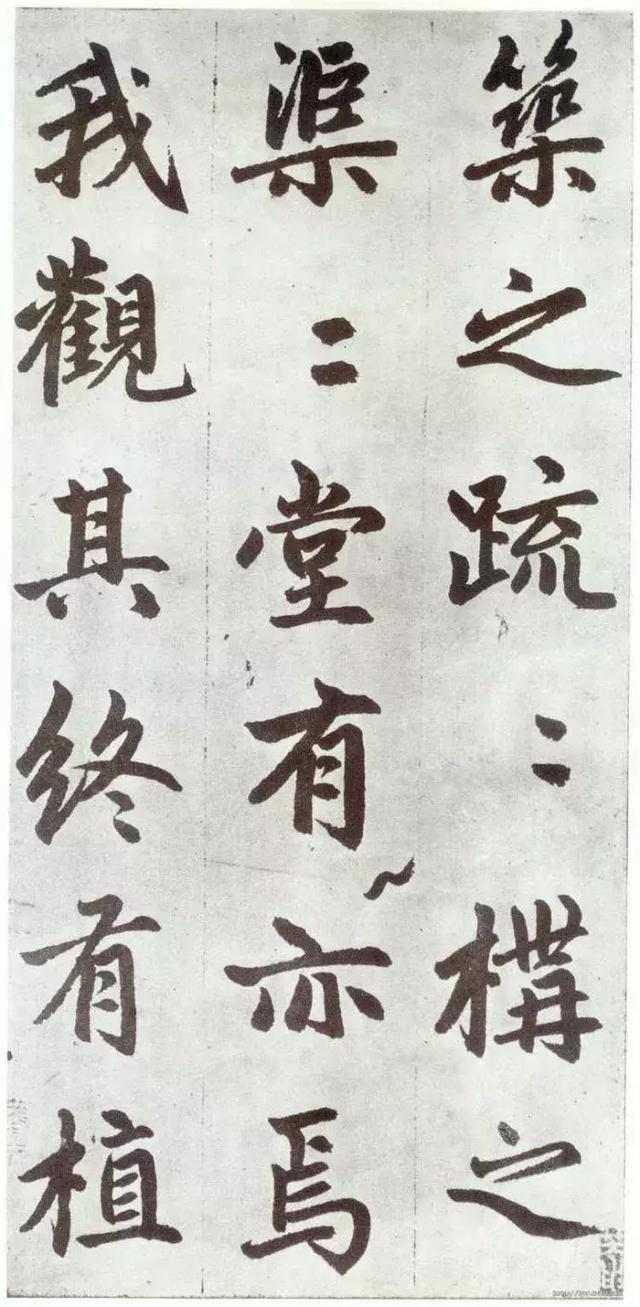 築之疏〻構之
渠〻堂有亦焉
我觀其終有植